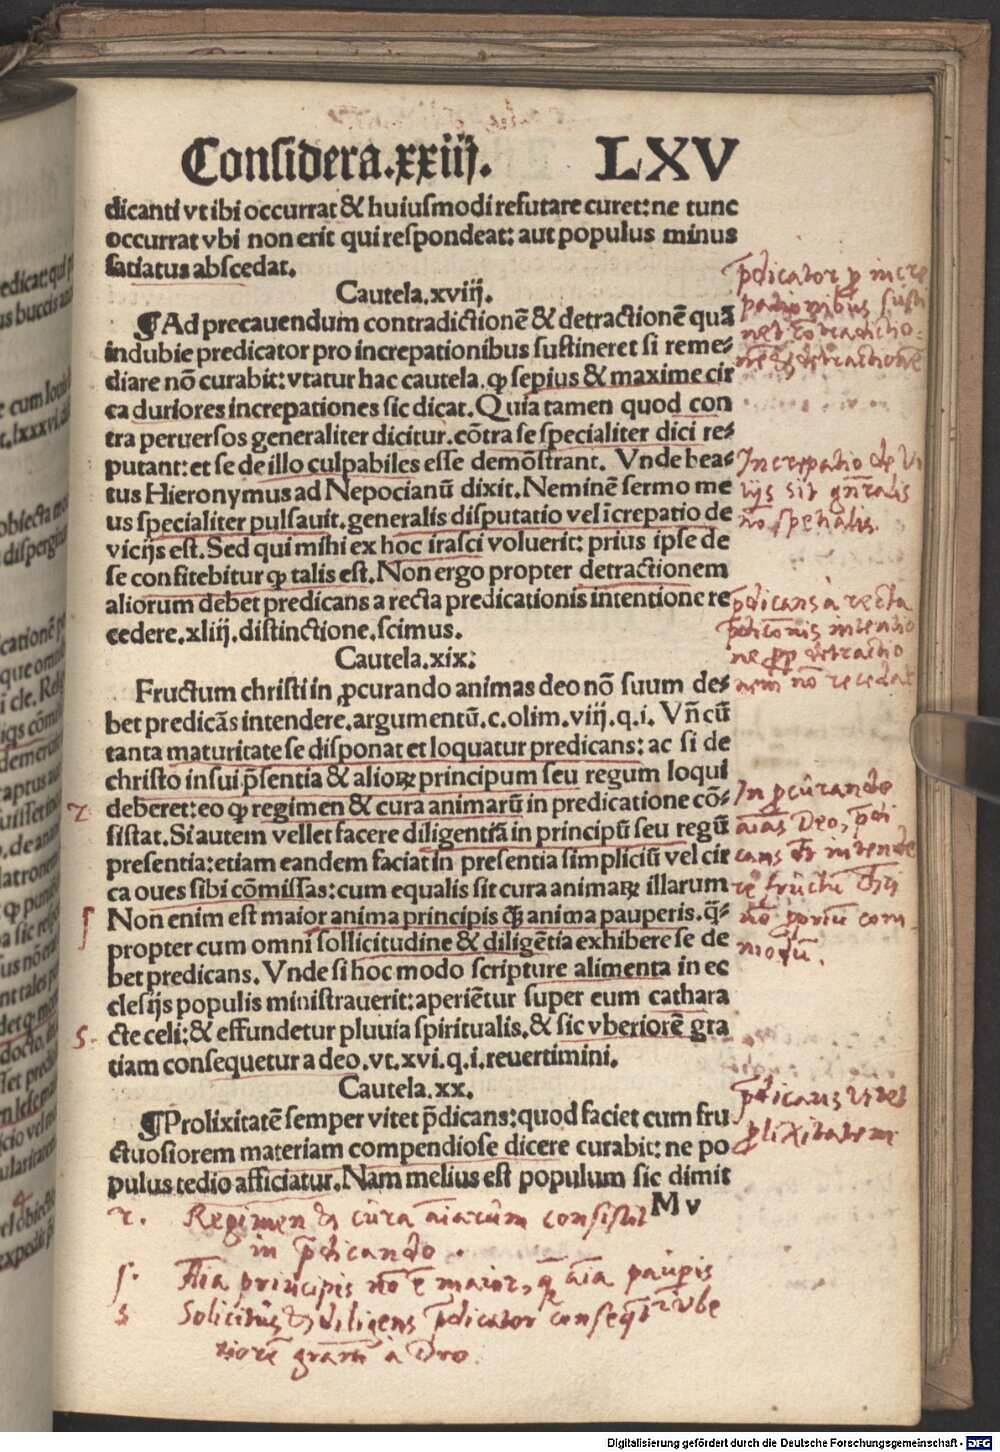 Considera.xxiij. LXV
dicanti vt ibi occurrat & huiusmodi refutare curet: ne tunc
occurrat vbi non erit qui respondeat: aut populus minus
satiatus abscedat.
Cautela.xviij.
¶Ad precauendum contradictionē & detractionē quā
indubie predicator pro increpationibus sustineret si reme⸗
diare nō curabit: vtatur hac cautela. ꝙ sepius & maxime cir
ca duriores increpationes sic dicat. Quia tamen quod con
tra peruersos generaliter dicitur. cōtra se specialiter dici re⸗
putant: et se de illo culpabiles esse demōstrant. Vnde bea⸗
tus Hieronymus ad Nepocianū dixit. Neminē sermo me
us specialiter pulsauit. generalis disputatio vel īcrepatio de
vicijs est. Sed qui mihi ex hoc irasci voluerit: prius ipse de
se confitebitur ꝙ talis est. Non ergo propter detractionem
aliorum debet predicans a recta predicationis intentione re
cedere. xliij. distinctione. scimus.
Cautela.xix:
Fructum christi in ꝓcurando animas deo nō suum de⸗
bet predicās intendere. argumentū. c. olim. viij. q. i. Vn̄ cū
tanta maturitate se disponat et loquatur predicans: ac si de
christo in sui p̄sentia & alioꝝ principum seu regum loqui
deberet: eo ꝙ regimen & cura animarū in predicatione cō⸗
sistat. Si autem vellet facere diligentiā in principū seu regū
presentia: etiam eandem faciat in presentia simpliciū vel cir
ca oues sibi cōmissas: cum equalis sit cura animaꝝ illarum
Non enim est maior anima principis ꝙ̄ anima pauperis. q̄⸗
propter cum omni sollicitudine & diligētia exhibere se de
bet predicans. Vnde si hoc modo scripture alimenta in ec
clesijs populis ministrauerit: aperiētur super eum cathara
cte celi: & effundetur pluuia spiritualis. & sic vberiorē gra
tiam consequetur a deo. vt. xvi. q. i. reuertimini.
Cautela.xx.
¶Prolixitatē semper vitet p̄dicans: quod faciet cum fru
ctuosiorem materiam compendiose dicere curabit: ne po
pulus tedio afficiatur. Nam melius est populum sic dimit
M v
p̄dicator ꝓ incre
pationibus susti
net cōtradictio
nē & detractionē
Increpatio de vi
tijs sit gn̄ralis
nō spetialis.
p̄dicans à recta
p̄dicōnis intentio
ne ꝓp detractio
nem nō recedat
In ꝓcurando
aīas Deo, p̄di
cans dt intende
re fructū Chri
nō
modū.
p̄dicans vitet
ꝓlixitatem
r. Regimen & cura aīarum consistit
in p̄dicando.
s. Aīa principis nō ē maior, q̄ aīa paupis
s Solicitus & diligens p̄dicator conseqt᷑ vbe
riorē gratiā à Deo.
Digitalisierung gefördert durch die Deutsche Forschungsgemeinschaft - DFG